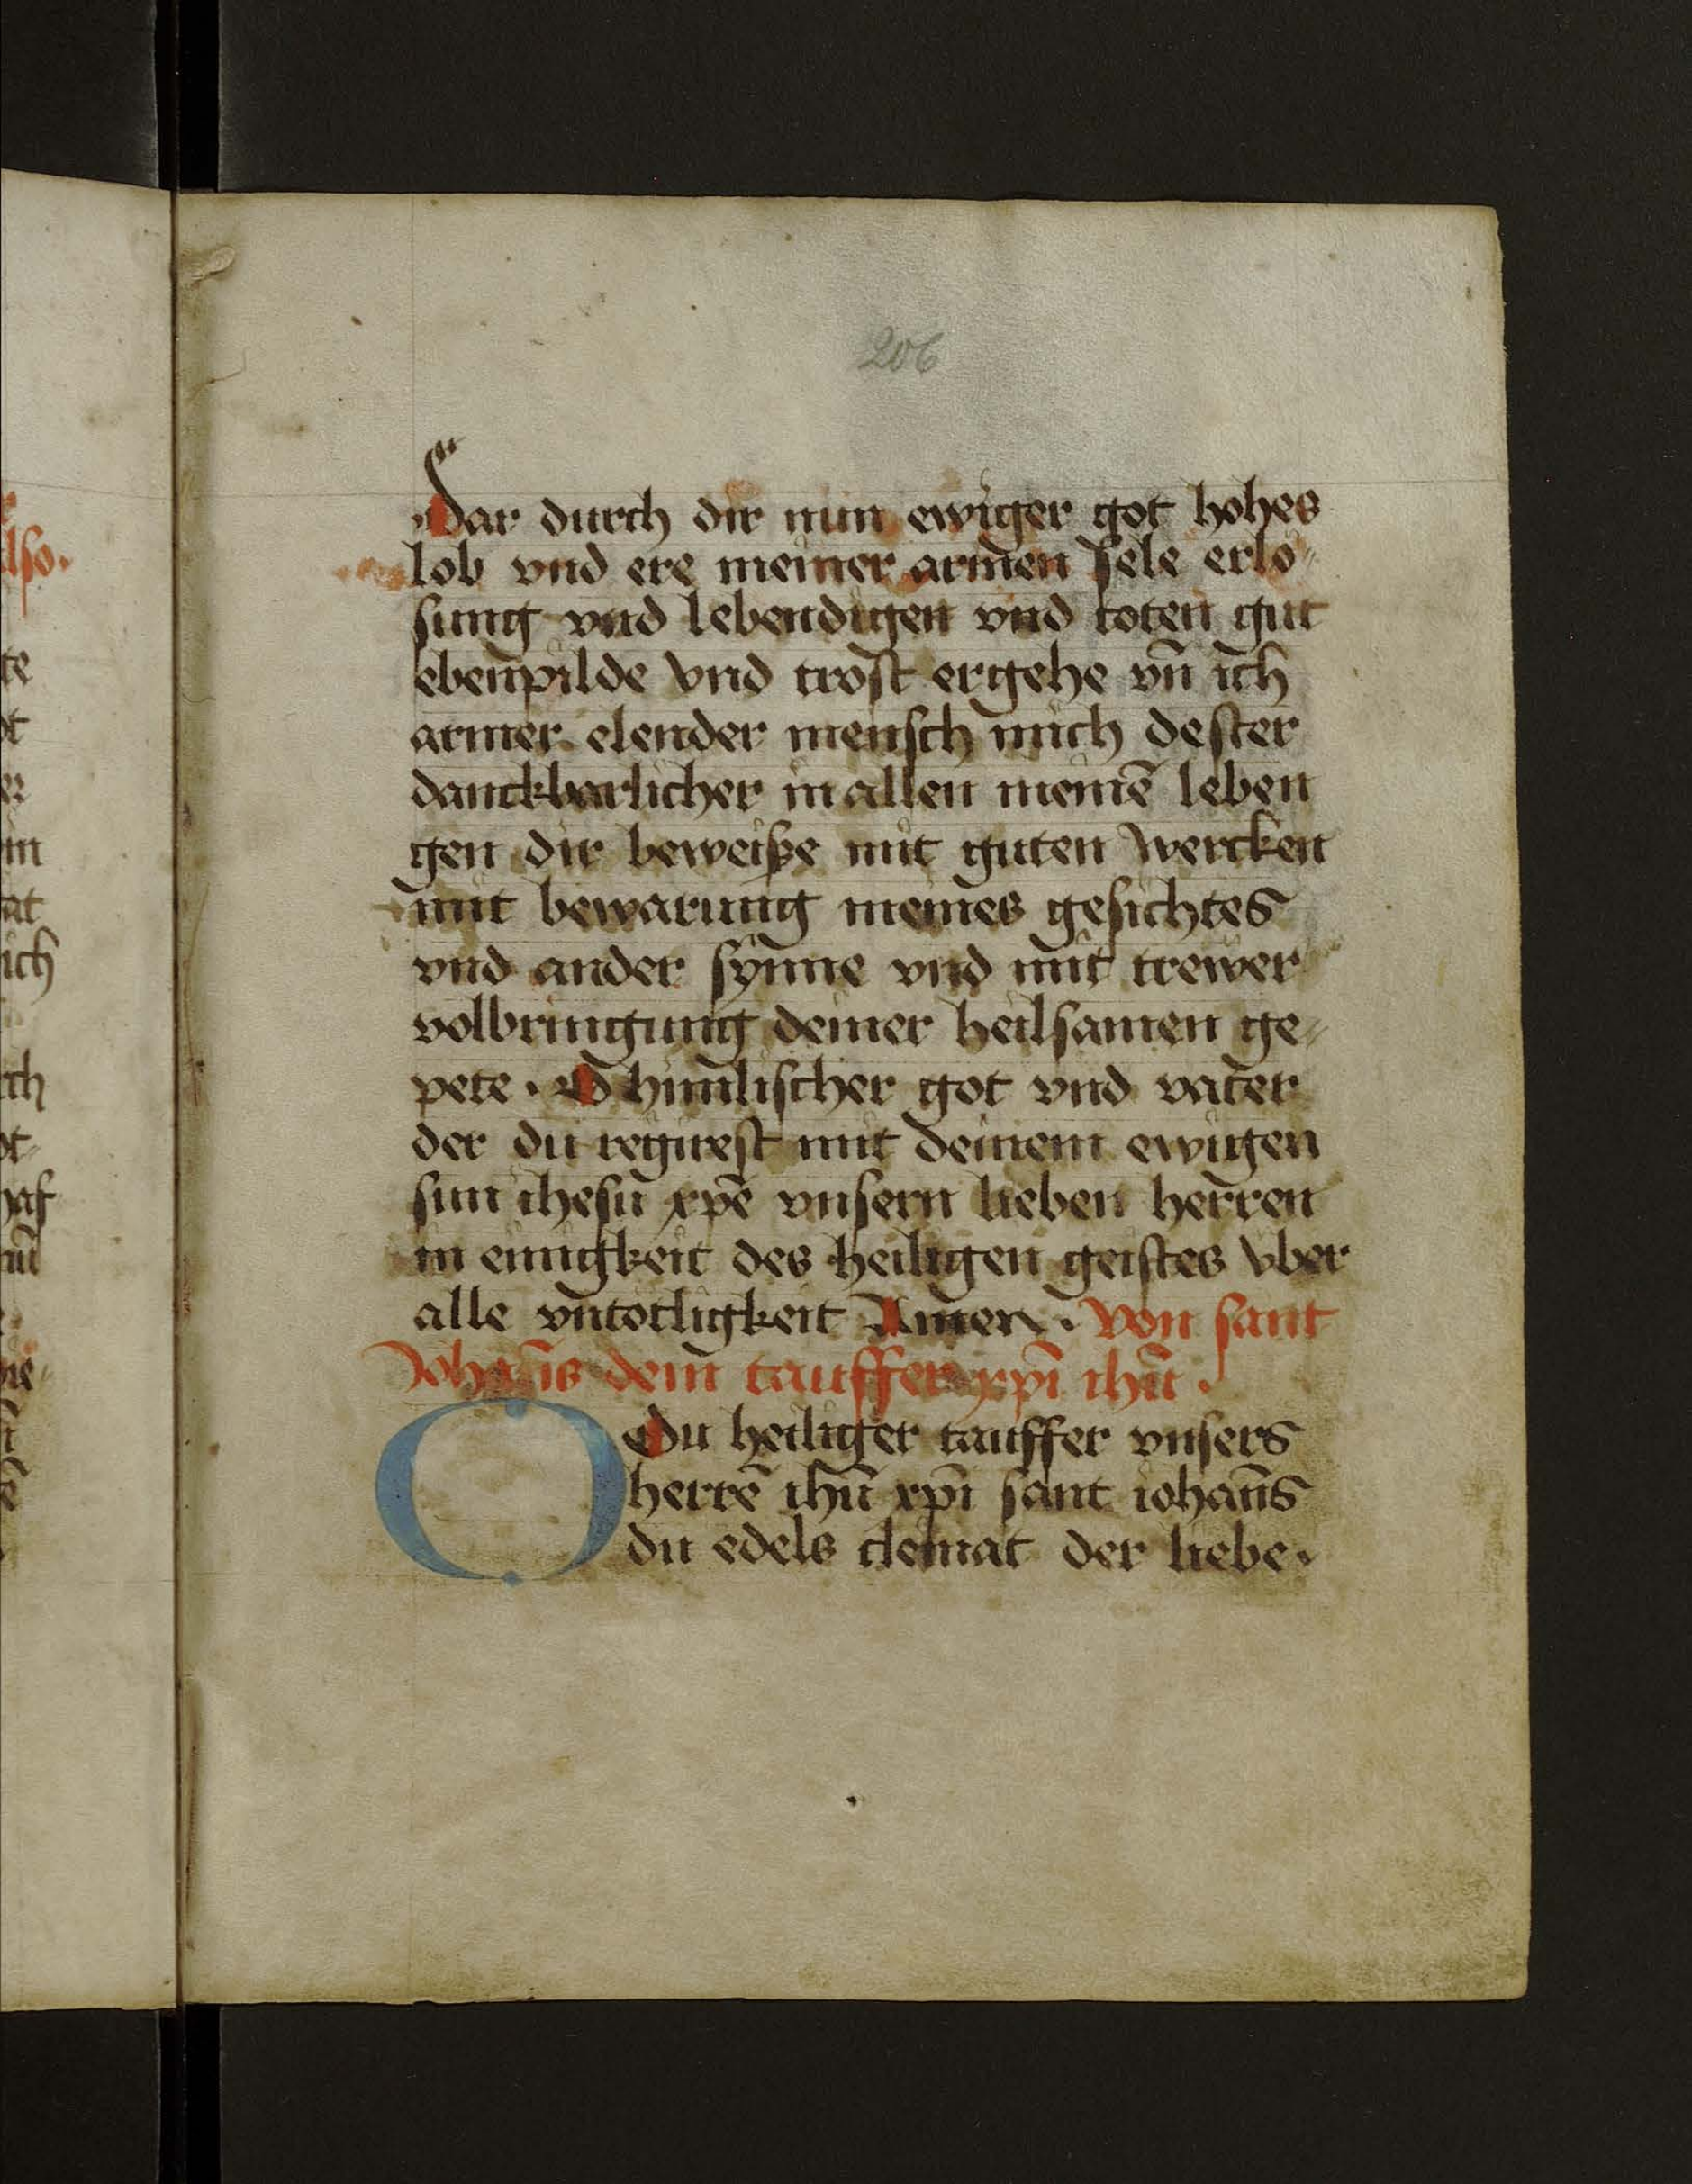 206
Dar durch dir nun ewiger got hohes
lob vnd ere meiner armen sele erlo〃
sung vnd lebendigen vnd toten gut
ebenpilde vnd trost ergehe vn̄ ich
armer elender mensch mich dester
danckbarlicher in allen meinē leben
gen dir beweiße mit guten wercken
mit bewarung meines gesichtes
vnd ander synne vnd mit trewer
volbringung deiner heilsamen ge〃
pete. O himlischer got vnd vater
der du regirest mit deinem ewigen
sun ihesu xpē vnsern lieben herren
in einigkeit des heiligen geistes vber
alle vntotligkeit Amen. Von sant
Johān̄s dem tauffer xpī ihū.
O Du heiliger tauffer vnsers
herrē ihū xpī sant iohan̄s
du edels cleinat der liebe.